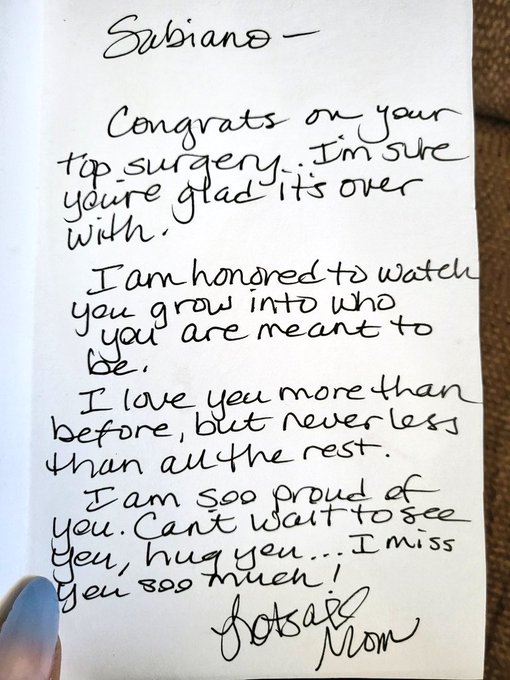 Sabiano —
Congrats on your
top surgery... I'm sure
you're glad it's over
with.
I am honored to watch
you grow into who
you are meant to
be.
I love you more than
before, but never less
than all the rest.
I am soo proud of
you. Can't wait to see
you, hug you... I miss
you soo much!
Lotsa
Mom